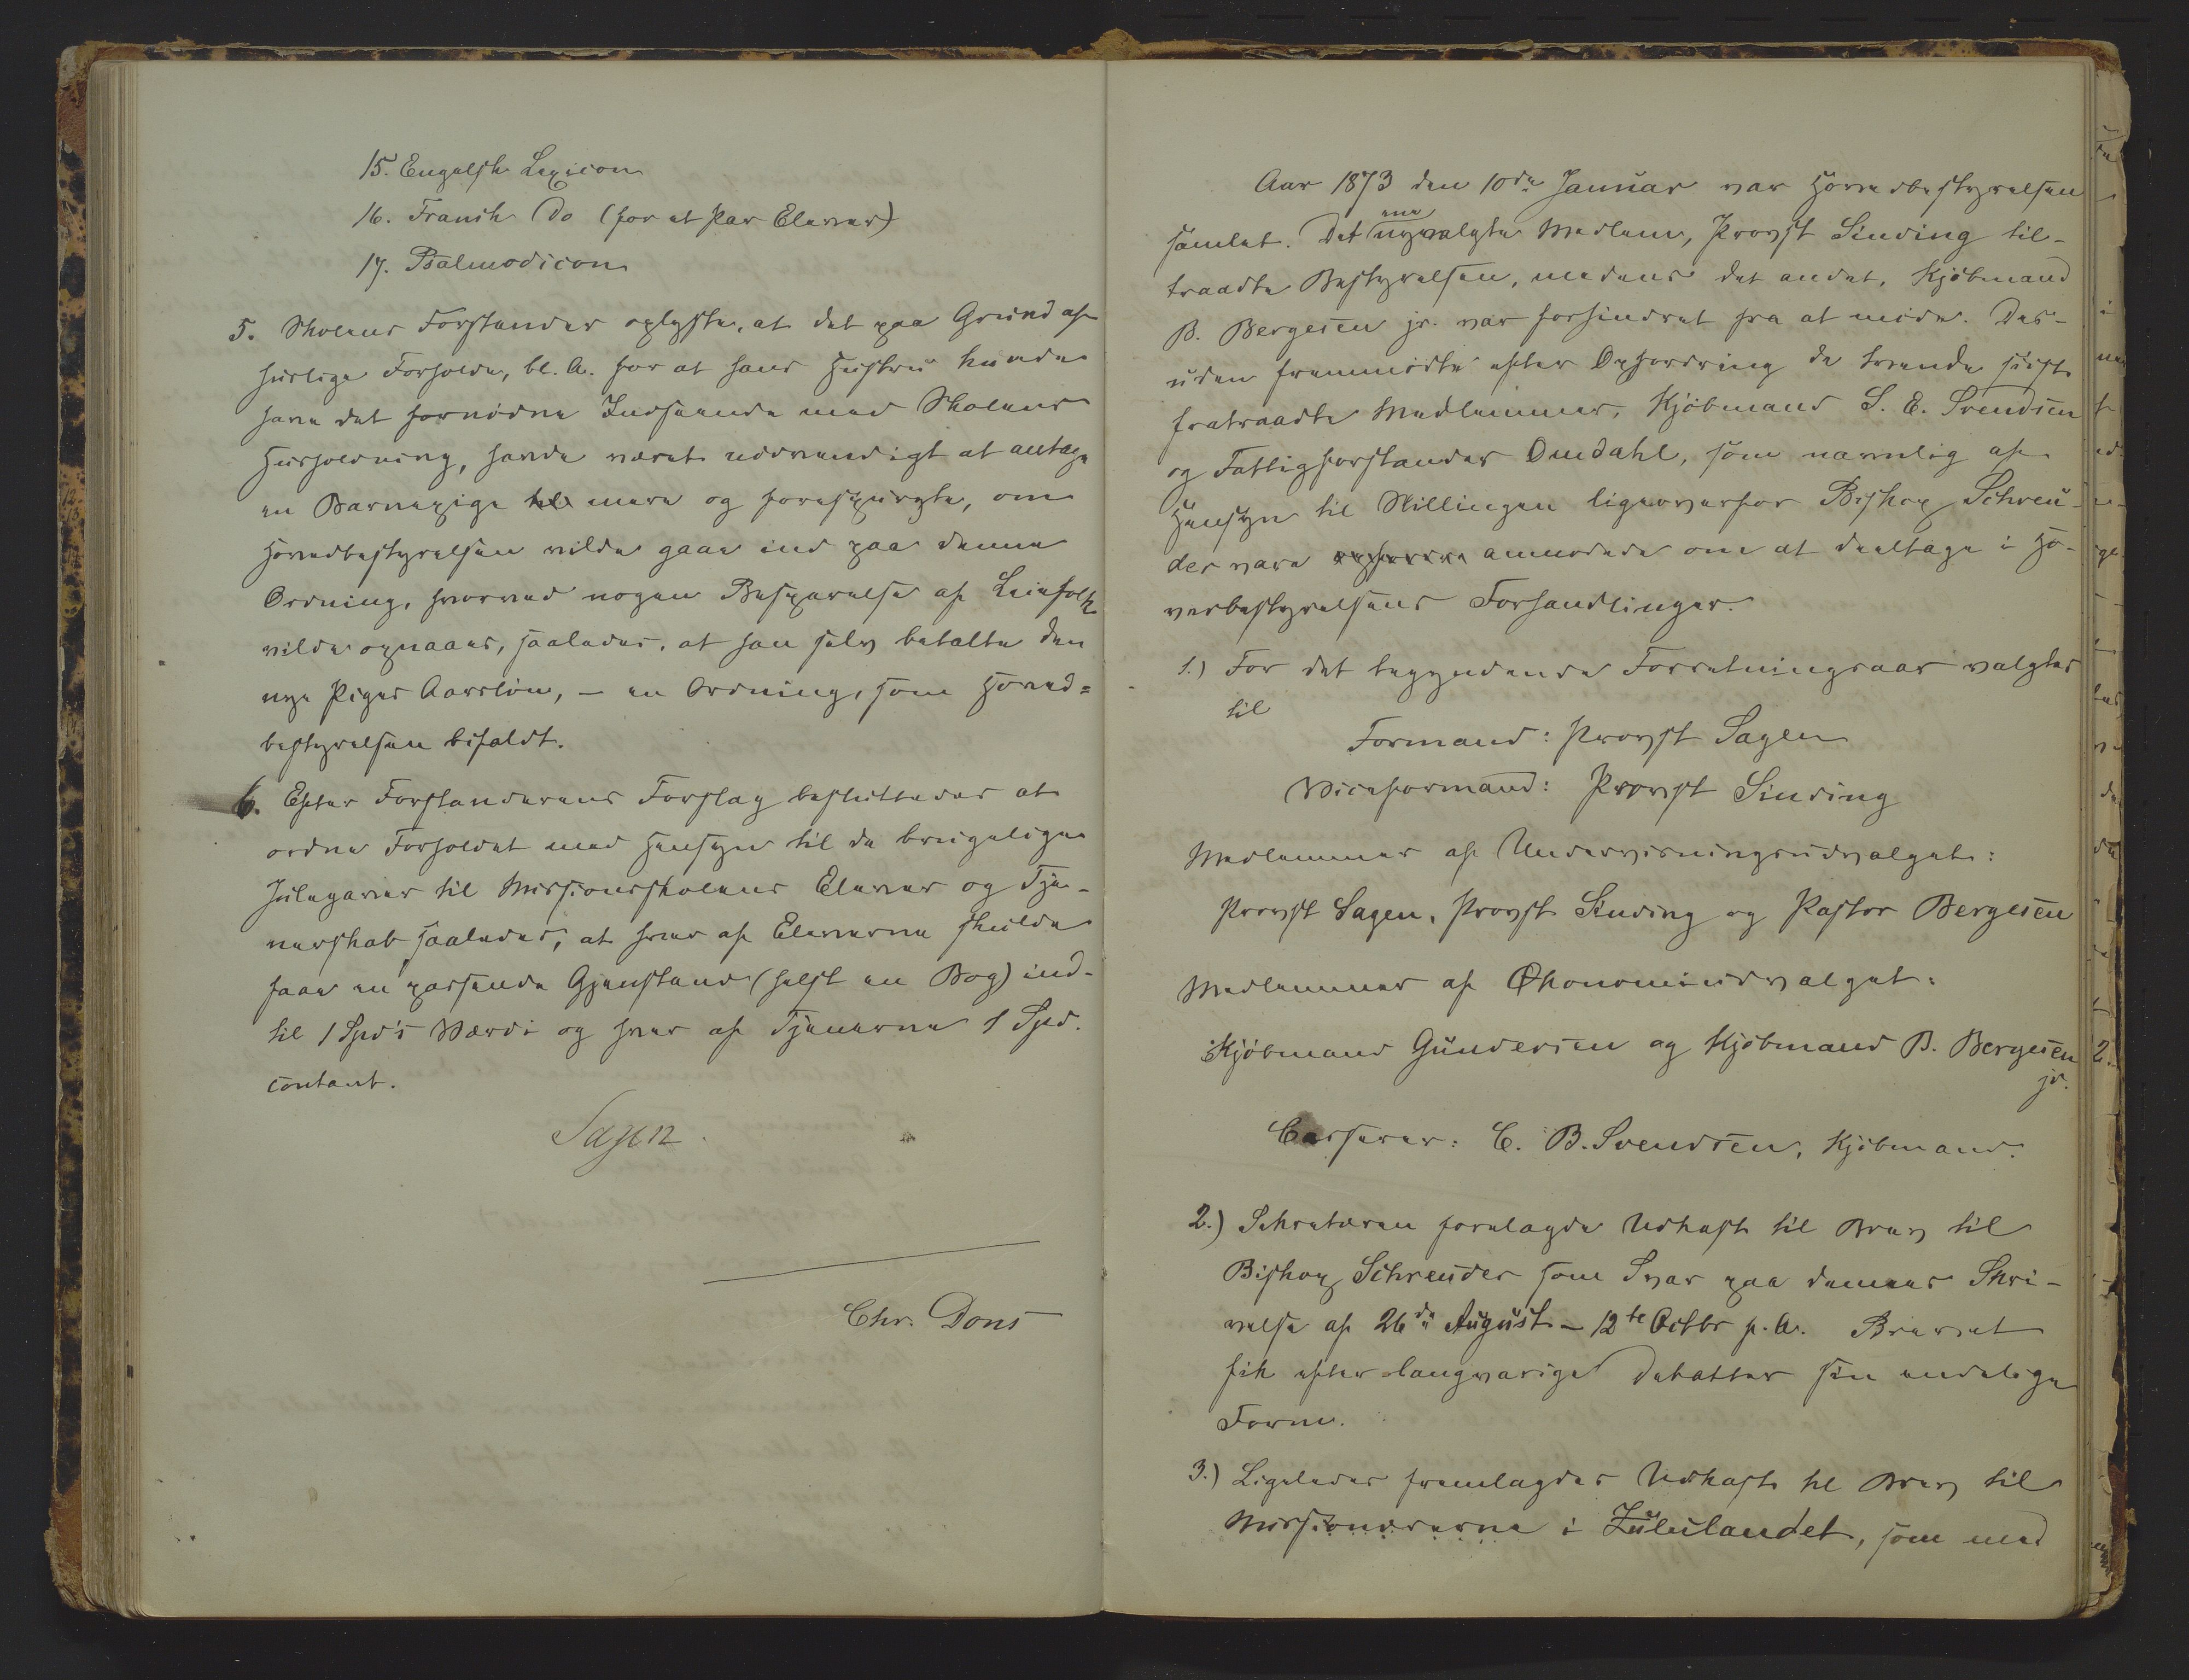 15. Engelsk Lexicon
16. Fransk Do (for et Par Elever)
17. Psalmodicon
5. Skolens Forstander oplyste, at det paa Grund af
huslige Forholde, bl. A. for at hans Hustru kunde
have det fornødne Indseende med Skolens
Husholdning, havde været nødvendigt at antage
en Barnepige til mere og forespurgte, om
Hovedbestyrelsen vilde gaae ind paa denne
Ordning, hvorved nogen Besparelse af Leiefolk
vilde opnaaes, saaledes, at han selv betalte den
nye Piges Aarsløn, – en Ordning, som Hoved=
bestyrelsen bifaldt.
6. Efter Forstanderens Forslag besluttedes at
ordne Forholdet med Hensyn til de brugelige
Julegaver til Missionsskolens Elever og Tje-
nerskab saaledes, at hver af Eleverne skulde
faae en passende Gjenstand (helst en Bog) ind-
til 1 Spd's Værdi og hver af Tjenerne 1 Spd.
contant.
Sagen.
Chr. Dons
Aar 1873 den 10de Januar var Hovedbestyrelsen
samlet. Det ene nyvalgte Medlem, Provst Sinding til-
traadte Bestyrelsen, medens det andet, Kjøbmand
B. Bergesen jr. var forhindret fra at møde. Des-
uden fremmødte efter Opfordring de tvende sidst
fratraadte Medlemmer, Kjøbmand S. E. Svendsen
og Fattigforstander Omdahl, som navnlig af
Hensyn til Stillingen ligeoverfor Biskop Schreu-
der vare anmodede om at deeltage i Ho-
vedbestyrelsens Forhandlinger.
1.) For det begyndende Forretningsaar valgtes
til
Formand: Provst Sagen
Viceformand: Provst Sinding
Medlemmer af Undervisningsudvalget:
Provst Sagen, Provst Sinding og Pastor Bergesen
Medlemmer af Økonomiudvalget:
Kjøbmand Gundersen og Kjøbmand B. Bergesen
jr.
Casserer: C. B. Svendsen, Kjøbmand.
2.) Sekretæren forelagde Udkast til Brev til
Biskop Schreuder som Svar paa dennes Skri-
velse af 26de August – 12te Octbr f. A. Brevet
fik efter langvarige Debatter sin endelige
Form.
3.) Ligeledes fremlagdes Udkast til Brev til
Missionærerne i Zululandet, som med